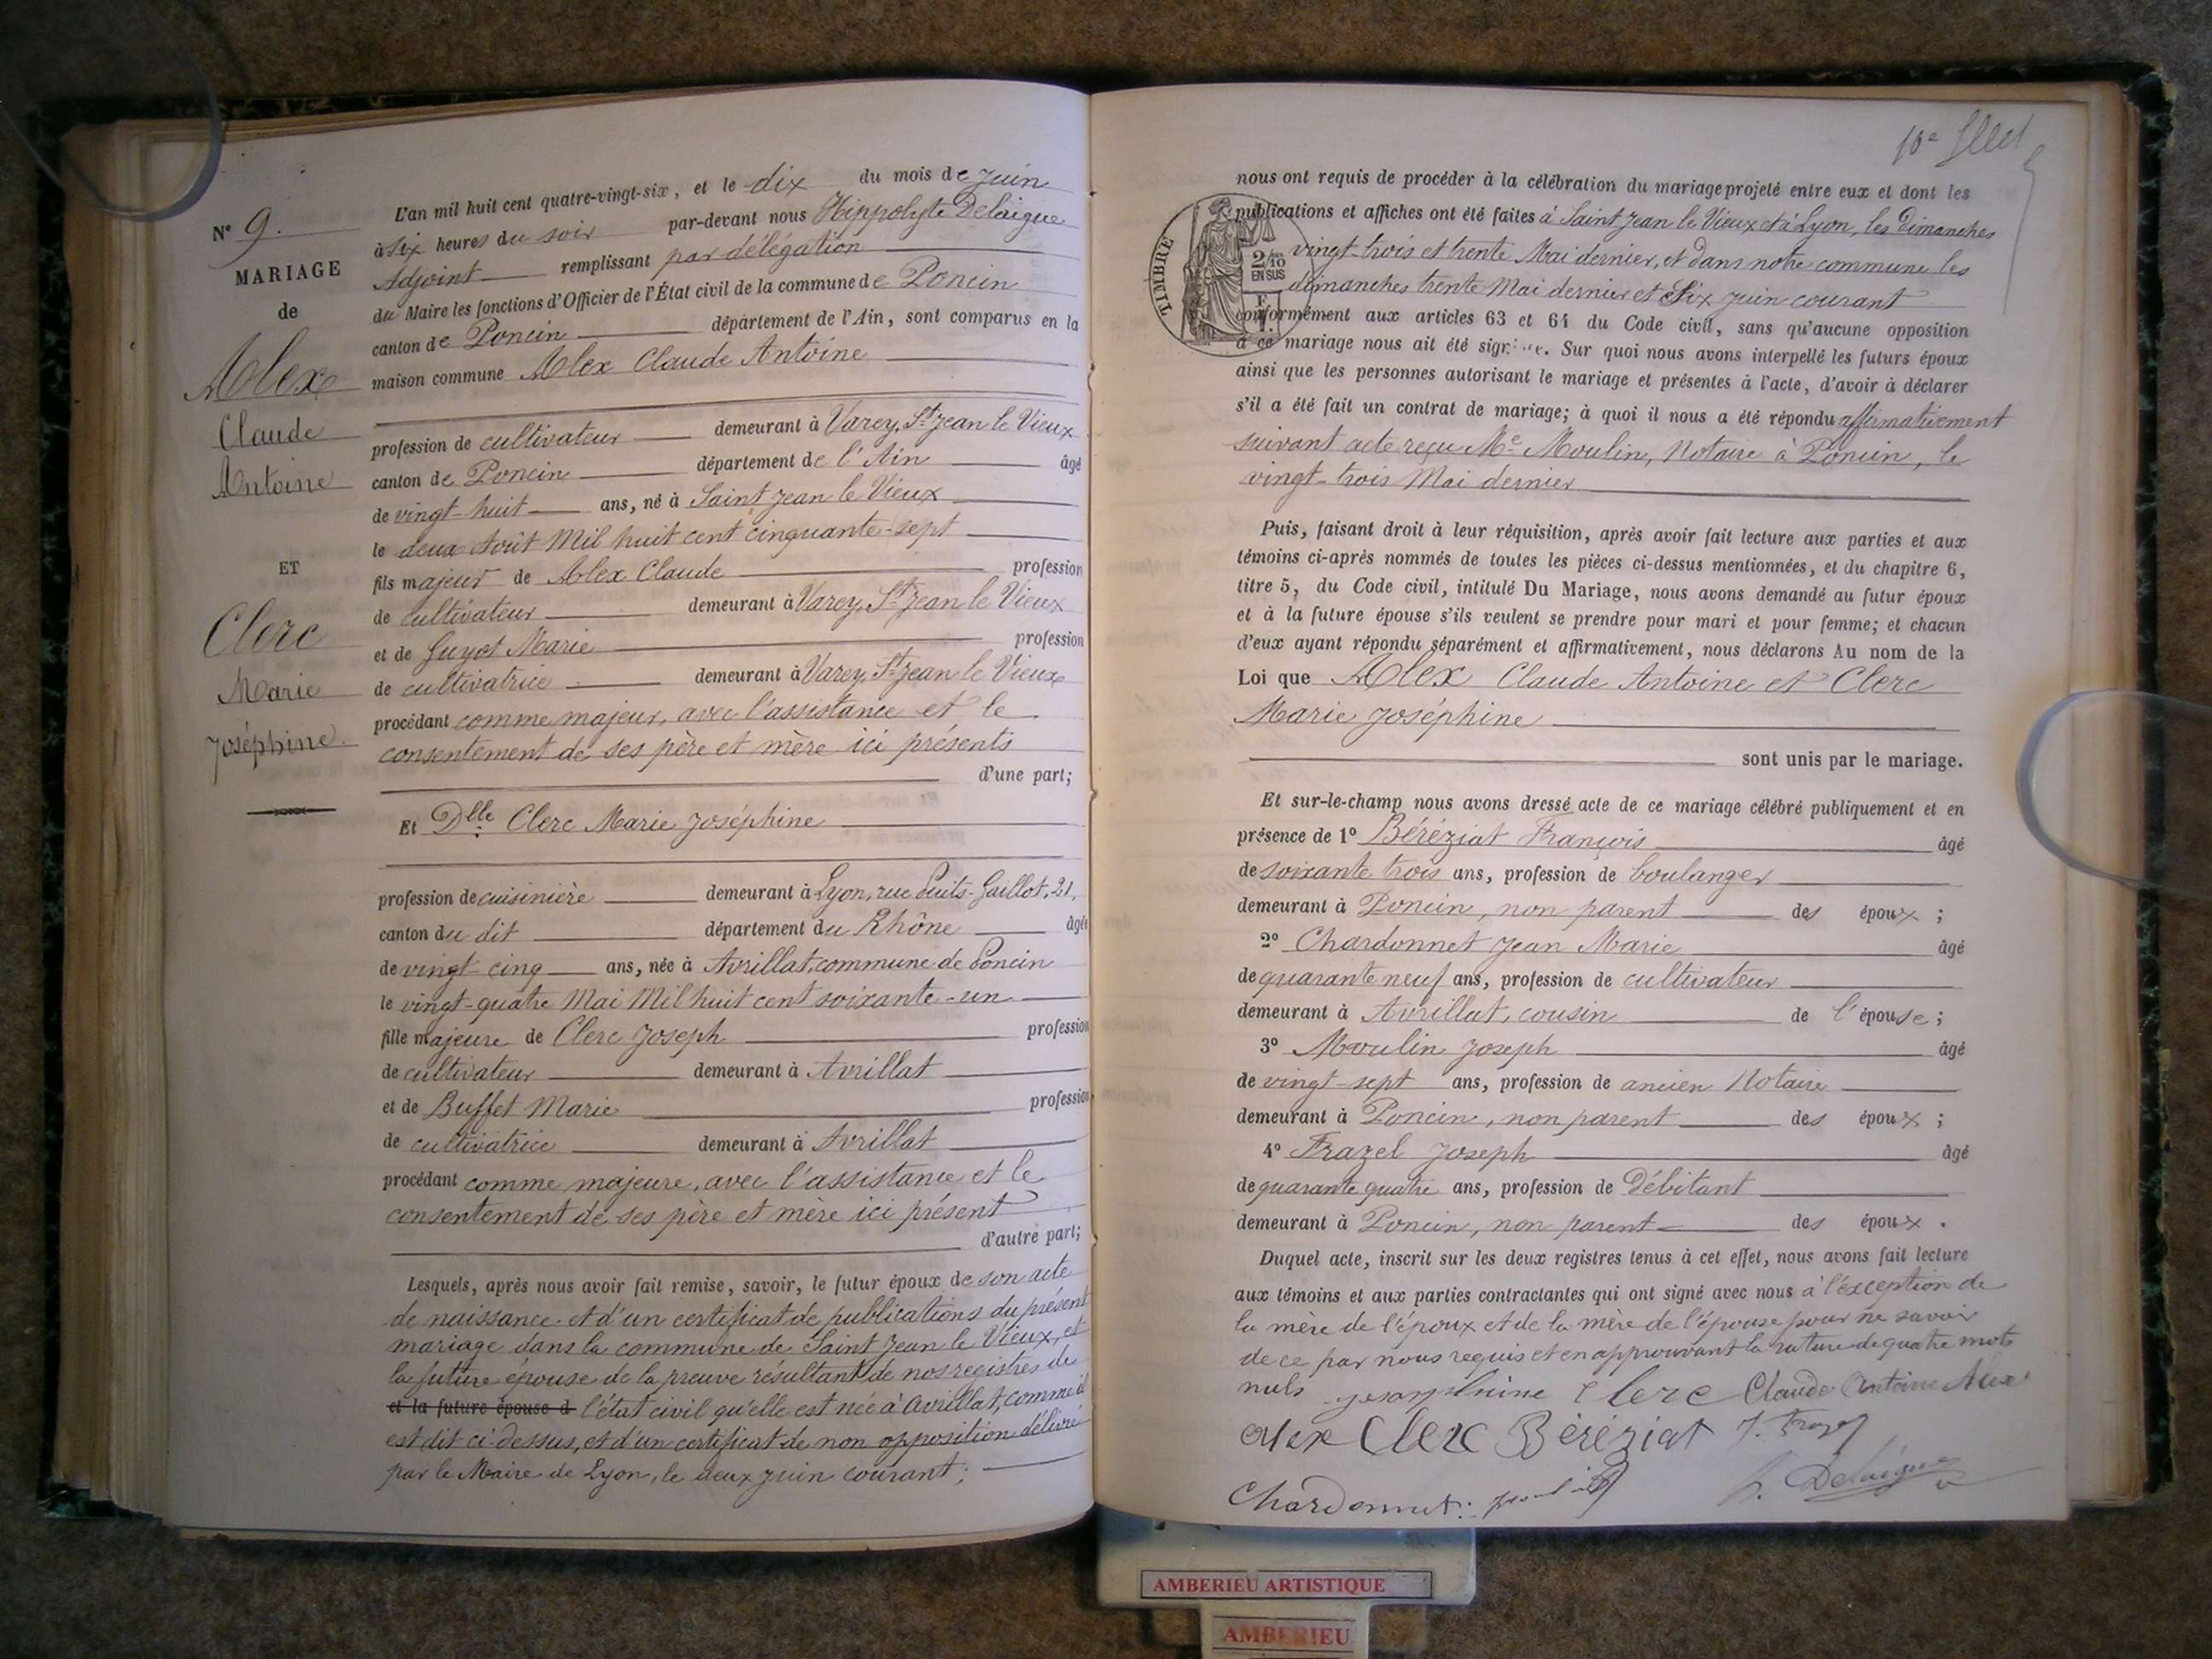 N° 9.
MARIAGE
de
Alex
Claude
Antoine
ET
Clerc
Marie
Joséphine
L'an mil huit cent quatre-vingt-six, et le dix du mois de juin
à six heures du soir par-devant nous Hippolyte Delaigue
Adjoint remplissant par délégation
du Maire les fonctions d'Officier de l'État civil de la commune de Poncin
canton de Poncin département de l'Ain, sont comparus en la
maison commune Alex Claude Antoine
profession de cultivateur demeurant à Varey, St Jean le Vieux
canton de Poncin département de l'Ain âgé
de vingt-huit ans, né à Saint Jean le Vieux
le deux Août Mil huit cent cinquante-sept
fils majeur de Alex Claude profession
de cultivateur demeurant à Varey, St Jean le Vieux
et de Guyot Marie profession
de cultivatrice demeurant à Varey, St Jean le Vieux
procédant comme majeur, avec l'assistance et le
consentement de ses père et mère ici présents
d'une part;
Et Dlle Clerc Marie Joséphine
profession de cuisinière demeurant à Lyon, rue Puits-Gaillot, 21,
canton du dit département du Rhône âgée
de vingt cinq ans, née à Avrillat, commune de Poncin
le vingt-quatre Mai Mil huit cent soixante-un
fille majeure de Clerc Joseph profession
de cultivateur demeurant à Avrillat
et de Buffet Marie profession
de cultivatrice demeurant à Avrillat
procédant comme majeure, avec l'assistance et le
consentement de ses père et mère ici présent
d'autre part;
Lesquels, après nous avoir fait remise, savoir, le futur époux de son acte
de naissance et d'un certificat de publications du présent
mariage dans la commune de Saint Jean le Vieux, et
la future épouse de la preuve résultant de nos registres de
et la future épouse d l'état civil qu'elle est née à Avrillat, comme il
est dit ci-dessus, et d'un certificat de non opposition délivré
par le Maire de Lyon, le deux juin courant;
10e
nous ont requis de procéder à la célébration du mariage projeté entre eux et dont les
publications et affiches ont été faites à Saint Jean le Vieux et à Lyon, les dimanches
vingt-trois et trente Mai dernier, et dans notre commune les
dimanches trente Mai dernier et Six juin courant
TIMBRE
2/10
EN SUS
conformément aux articles 63 et 64 du Code civil, sans qu'aucune opposition
à ce mariage nous ait été signifiée. Sur quoi nous avons interpellé les futurs époux
ainsi que les personnes autorisant le mariage et présentes à l'acte, d'avoir à déclarer
s'il a été fait un contrat de mariage; à quoi il nous a été répondu affirmativement
suivant acte reçu Me Moulin, Notaire à Poncin, le
vingt-trois Mai dernier
Puis, faisant droit à leur réquisition, après avoir fait lecture aux parties et aux
témoins ci-après nommés de toutes les pièces ci-dessus mentionnées, et du chapitre 6,
titre 5, du Code civil, intitulé Du Mariage, nous avons demandé au futur époux
et à la future épouse s'ils veulent se prendre pour mari et pour femme; et chacun
d'eux ayant répondu séparément et affirmativement, nous déclarons Au nom de la
Loi que Alex Claude Antoine et Clerc
Marie Joséphine
sont unis par le mariage.
Et sur-le-champ nous avons dressé acte de ce mariage célébré publiquement et en
présence de 1° Béréziat François âgé
de soixante trois ans, profession de boulanger
demeurant à Poncin, non parent des époux;
2° Chardonnet Jean Marie âgé
de quarante neuf ans, profession de cultivateur
demeurant à Avrillat, cousin de l'épouse;
3° Moulin Joseph âgé
de vingt-sept ans, profession de ancien Notaire
demeurant à Poncin, non parent des époux;
4° Frazel Joseph âgé
de quarante quatre ans, profession de Débitant
demeurant à Poncin, non parent des époux.
Duquel acte, inscrit sur les deux registres tenus à cet effet, nous avons fait lecture
aux témoins et aux parties contractantes qui ont signé avec nous à l'exception de
la mère de l'époux et de la mère de l'épouse pour ne savoir
de ce par nous requis et en approuvant la rature de quatre mots
nuls Clerc Claude Antoine Alex
alex Clerc Béréziat J. Frazel
Chardonnet h. Delaigue
AMBERIEU ARTISTIQUE
AMBERIEU